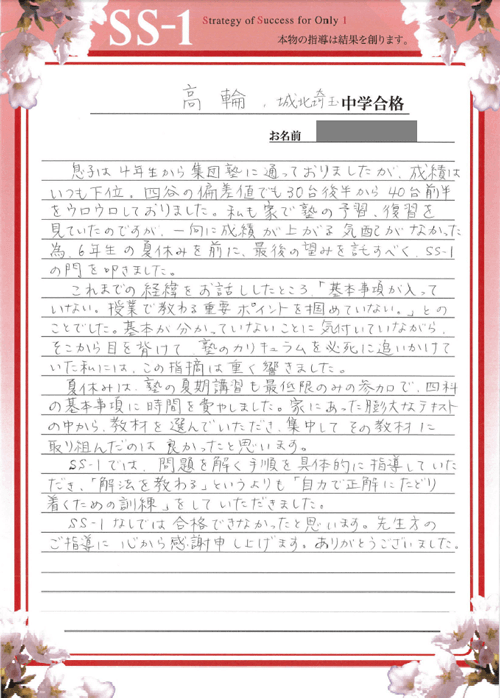 SS-1
Strategy of Success for Only 1
本物の指導は結果を創ります。
高輪、城北埼玉中学合格
お名前
息子は4年生から集団塾に通っておりましたが、成績は
いつも下位。四谷の偏差値でも30台後半から40台前半
をウロウロしておりました。私も家で塾の予習、復習を
見ていたのですが、一向に成績が上がる気配がなかった
為、6年生の夏休みを前に、最後の望みを託すべく、SS-1
の門を叩きました。
これまでの経緯をお話ししたところ「基本事項が入って
いない。授業で教わる重要ポイントを掴めていない。」との
ことでした。基本が分かっていないことに気付いていながら、
そこから目を背けて 塾のカリキュラムを必死に追いかけて
いた私には、この指摘は重く響きました。
夏休みは、塾の夏期講習も最低限のみの参加で、四科
の基本事項に時間を費やしました。家にあった膨大なテキスト
の中から、教材を選んでいただき、集中してその教材に
取り組んだのは良かったと思います。
SS-1では、問題を解く手順を具体的に指導していた
だき、「解法を教わる」というよりも「自力で正解にたどり
着くための訓練」をしていただきました。
SS-1なしでは合格できなかったと思います。先生方の
ご指導に心から感謝申し上げます。ありがとうございました。